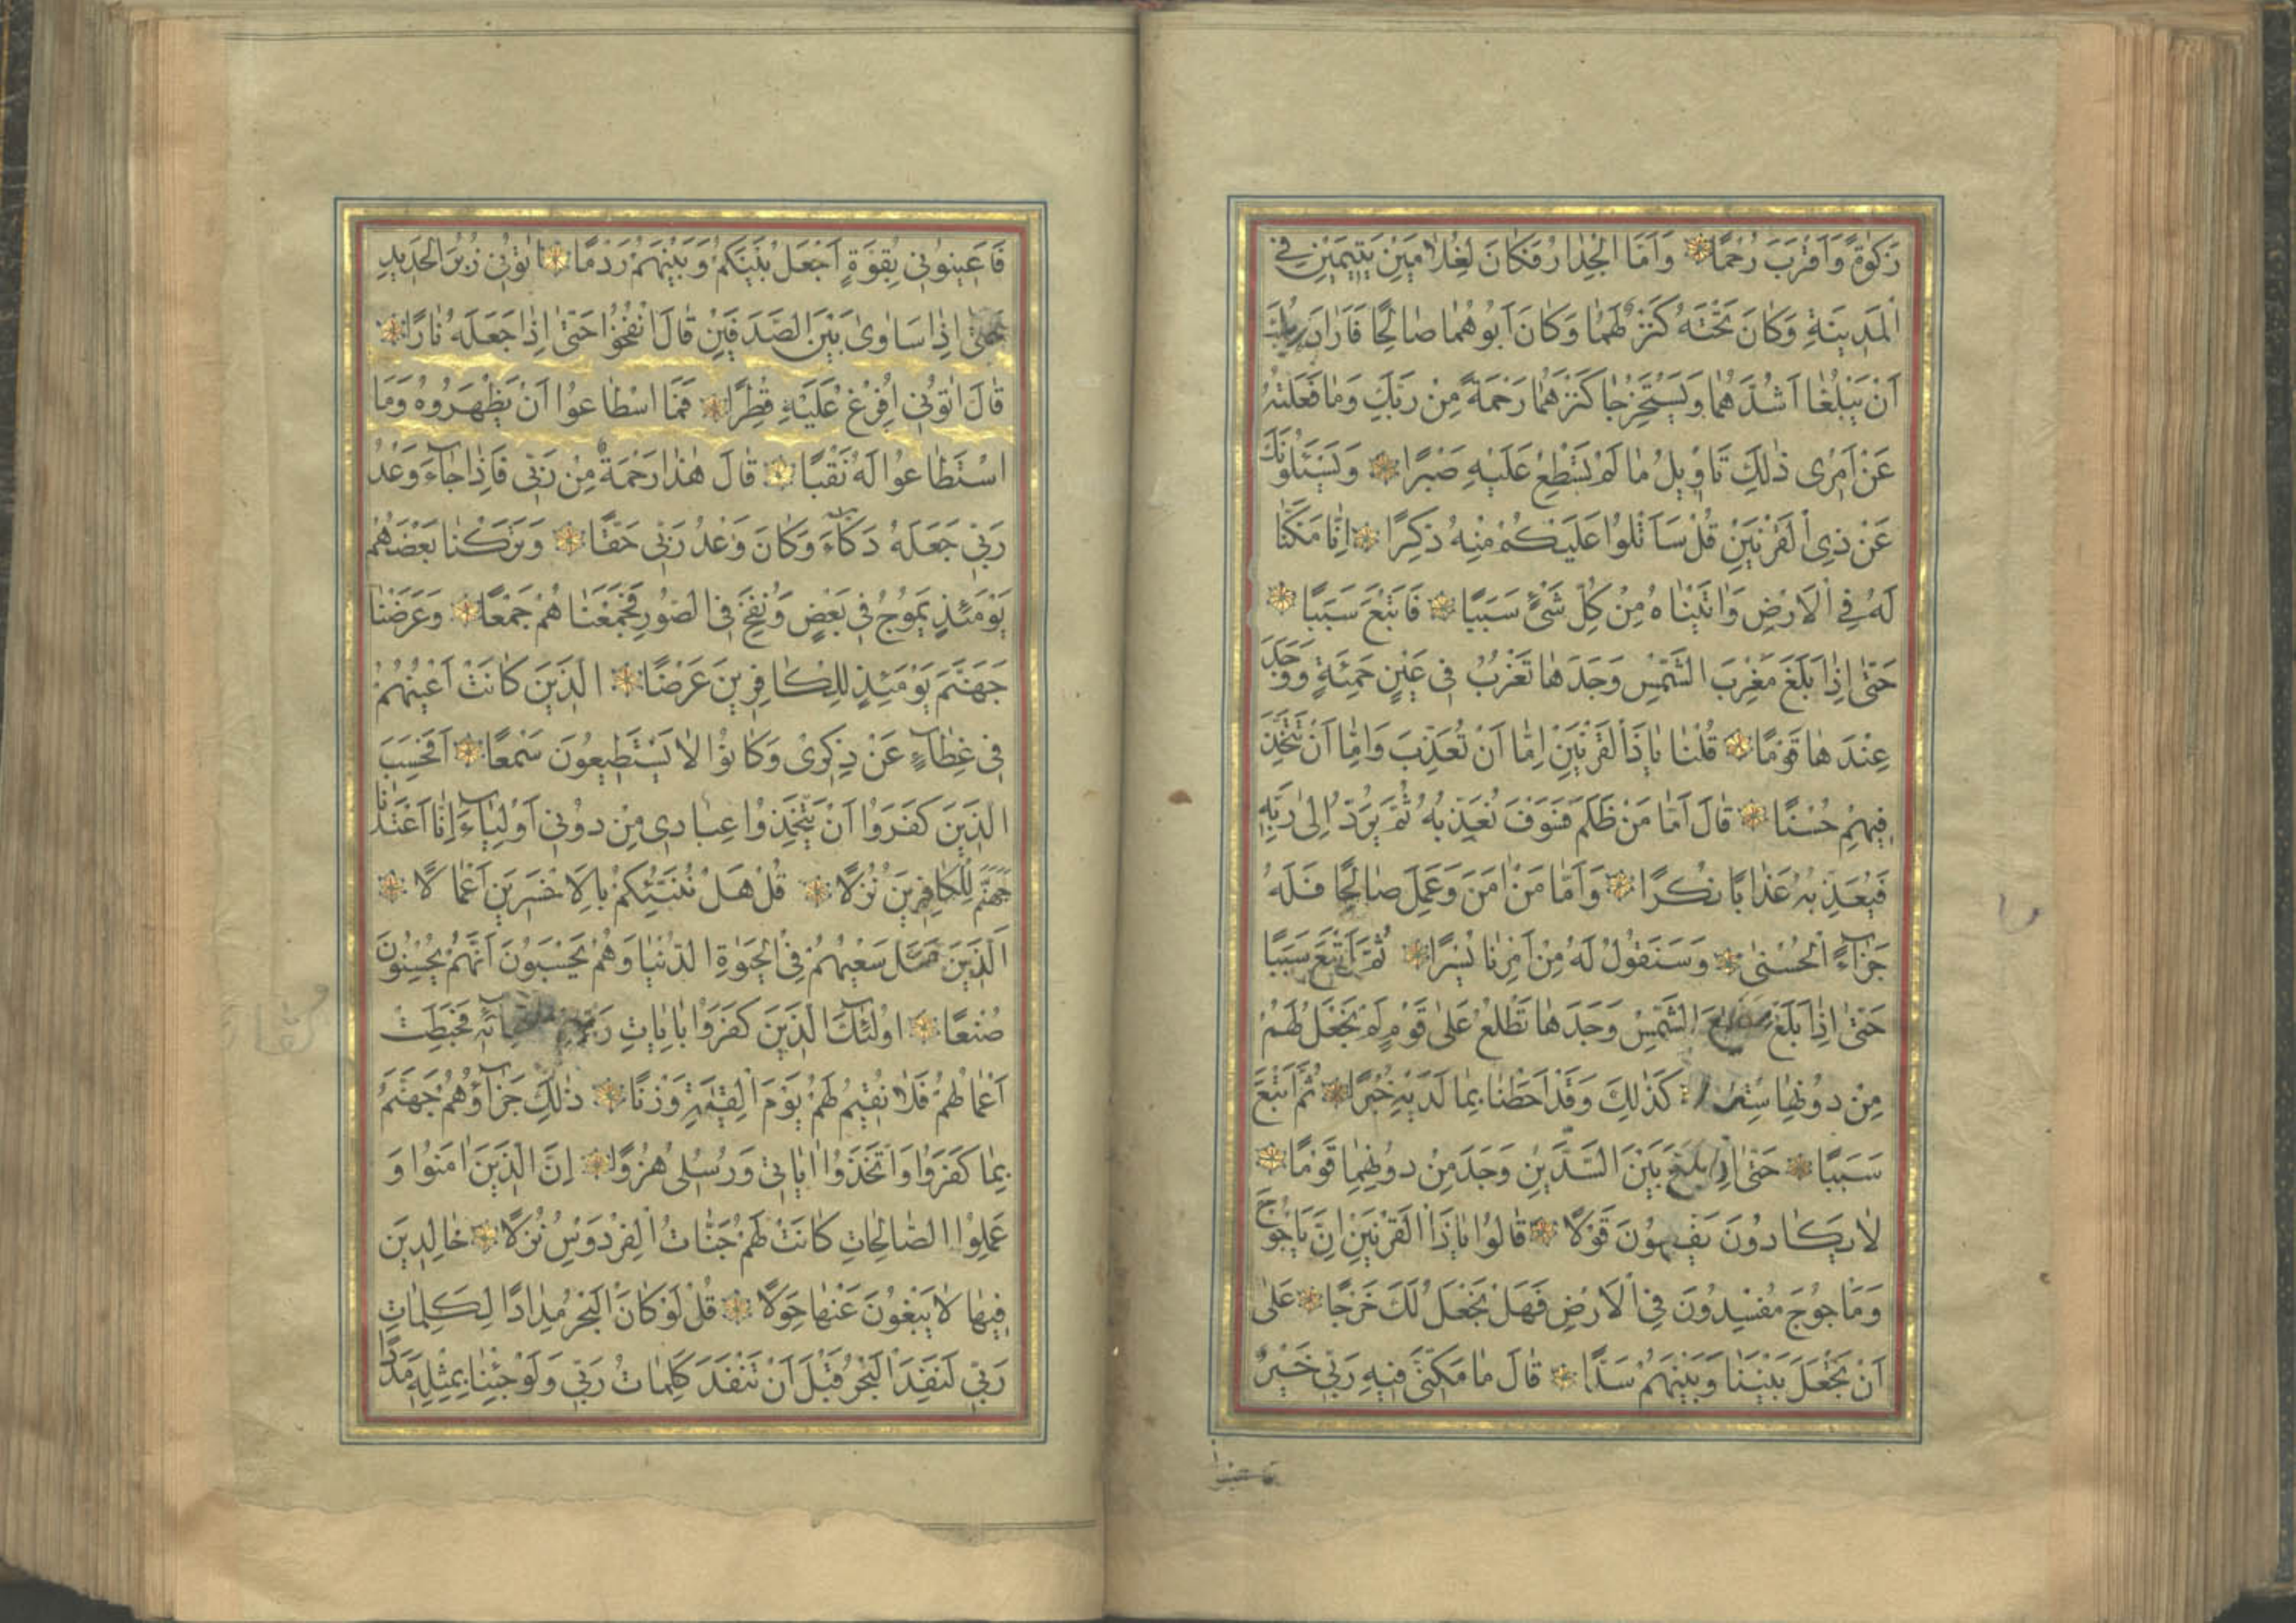 زَكٰوةً وَاَقْرَبَ رُحْمًا وَاَمَّا الْجِدَارُ فَكَانَ لِغُلَامَيْنِ يَتِيمَيْنِ فِي
الْمَدِينَةِ وَكَانَ تَحْتَهُ كَنْزٌ لَهُمَا وَكَانَ اَبُوهُمَا صَالِحًا فَاَرَادَ رَبُّكَ
اَنْ يَبْلُغَا اَشُدَّهُمَا وَيَسْتَخْرِجَا كَنْزَهُمَا رَحْمَةً مِنْ رَبِّكَ وَمَا فَعَلْتُهُ
عَنْ اَمْرِى ذٰلِكَ تَاْوِيلُ مَا لَمْ تَسْطِعْ عَلَيْهِ صَبْرًا وَيَسْئَلُونَكَ
عَنْ ذِى الْقَرْنَيْنِ قُلْ سَاَتْلُوا عَلَيْكُمْ مِنْهُ ذِكْرًا اِنَّا مَكَّنَّا
لَهُ فِي الْاَرْضِ وَاٰتَيْنَاهُ مِنْ كُلِّ شَىْءٍ سَبَبًا فَاَتْبَعَ سَبَبًا
حَتّٰى اِذَا بَلَغَ مَغْرِبَ الشَّمْسِ وَجَدَهَا تَغْرُبُ فِى عَيْنٍ حَمِئَةٍ وَوَجَدَ
عِنْدَهَا قَوْمًا قُلْنَا يَاذَا الْقَرْنَيْنِ اِمَّا اَنْ تُعَذِّبَ وَاِمَّا اَنْ تَتَّخِذَ
فِيهِمْ حُسْنًا قَالَ اَمَّا مَنْ ظَلَمَ فَسَوْفَ نُعَذِّبُهُ ثُمَّ يُرَدُّ اِلٰى رَبِّهِ
فَيُعَذِّبُهُ عَذَابًا نُكْرًا وَاَمَّا مَنْ اٰمَنَ وَعَمِلَ صَالِحًا فَلَهُ
جَزَآءً الْحُسْنٰى وَسَنَقُولُ لَهُ مِنْ اَمْرِنَا يُسْرًا ثُمَّ اَتْبَعَ سَبَبًا
حَتّٰى اِذَا بَلَغَ مَطْلِعَ الشَّمْسِ وَجَدَهَا تَطْلُعُ عَلٰى قَوْمٍ لَمْ نَجْعَلْ لَهُمْ
مِنْ دُونِهَا سِتْرًا كَذٰلِكَ وَقَدْ اَحَطْنَا بِمَا لَدَيْهِ خُبْرًا ثُمَّ اَتْبَعَ
سَبَبًا حَتّٰى اِذَا بَلَغَ بَيْنَ السَّدَّيْنِ وَجَدَ مِنْ دُونِهِمَا قَوْمًا
لَا يَكَادُونَ يَفْقَهُونَ قَوْلًا قَالُوا يَاذَا الْقَرْنَيْنِ اِنَّ يَاْجُوجَ
وَمَاْجُوجَ مُفْسِدُونَ فِى الْاَرْضِ فَهَلْ نَجْعَلُ لَكَ خَرْجًا عَلٰى
اَنْ تَجْعَلَ بَيْنَنَا وَبَيْنَهُمْ سَدًّا قَالَ مَا مَكَّنِّى فِيهِ رَبِّى خَيْرٌ
فَاَعِينُونِى بِقُوَّةٍ اَجْعَلْ بَيْنَكُمْ وَبَيْنَهُمْ رَدْمًا اٰتُونِى زُبَرَ الْحَدِيدِ
حَتّٰى اِذَا سَاوٰى بَيْنَ الصَّدَفَيْنِ قَالَ انْفُخُوا حَتّٰى اِذَا جَعَلَهُ نَارًا
قَالَ اٰتُونِى اُفْرِغْ عَلَيْهِ قِطْرًا فَمَا اسْطَاعُوا اَنْ يَظْهَرُوهُ وَمَا
اسْتَطَاعُوا لَهُ نَقْبًا قَالَ هٰذَا رَحْمَةٌ مِنْ رَبِّى فَاِذَا جَآءَ وَعْدُ
رَبِّى جَعَلَهُ دَكَّآءَ وَكَانَ وَعْدُ رَبِّى حَقًّا وَتَرَكْنَا بَعْضَهُمْ
يَوْمَئِذٍ يَمُوجُ فِى بَعْضٍ وَنُفِخَ فِى الصُّورِ فَجَمَعْنَاهُمْ جَمْعًا وَعَرَضْنَا
جَهَنَّمَ يَوْمَئِذٍ لِلْكَافِرِينَ عَرْضًا الَّذِينَ كَانَتْ اَعْيُنُهُمْ
فِى غِطَآءٍ عَنْ ذِكْرِى وَكَانُوا لَا يَسْتَطِيعُونَ سَمْعًا اَفَحَسِبَ
الَّذِينَ كَفَرُوا اَنْ يَتَّخِذُوا عِبَادِى مِنْ دُونِى اَوْلِيَآءَ اِنَّا اَعْتَدْنَا
جَهَنَّمَ لِلْكَافِرِينَ نُزُلًا قُلْ هَلْ نُنَبِّئُكُمْ بِالْاَخْسَرِينَ اَعْمَالًا
اَلَّذِينَ ضَلَّ سَعْيُهُمْ فِى الْحَيٰوةِ الدُّنْيَا وَهُمْ يَحْسَبُونَ اَنَّهُمْ يُحْسِنُونَ
صُنْعًا اُولٰئِكَ الَّذِينَ كَفَرُوا بِاٰيَاتِ رَبِّهِمْ وَلِقَآئِهِ فَحَبِطَتْ
اَعْمَالُهُمْ فَلَا نُقِيمُ لَهُمْ يَوْمَ الْقِيٰمَةِ وَزْنًا ذٰلِكَ جَزَآؤُهُمْ جَهَنَّمُ
بِمَا كَفَرُوا وَاتَّخَذُوا اٰيَاتِى وَرُسُلِى هُزُوًا اِنَّ الَّذِينَ اٰمَنُوا وَ
عَمِلُوا الصَّالِحَاتِ كَانَتْ لَهُمْ جَنَّاتُ الْفِرْدَوْسِ نُزُلًا خَالِدِينَ
فِيهَا لَا يَبْغُونَ عَنْهَا حِوَلًا قُلْ لَوْ كَانَ الْبَحْرُ مِدَادًا لِكَلِمَاتِ
رَبِّى لَنَفِدَ الْبَحْرُ قَبْلَ اَنْ تَنْفَدَ كَلِمَاتُ رَبِّى وَلَوْ جِئْنَا بِمِثْلِهِ مَدَدًا